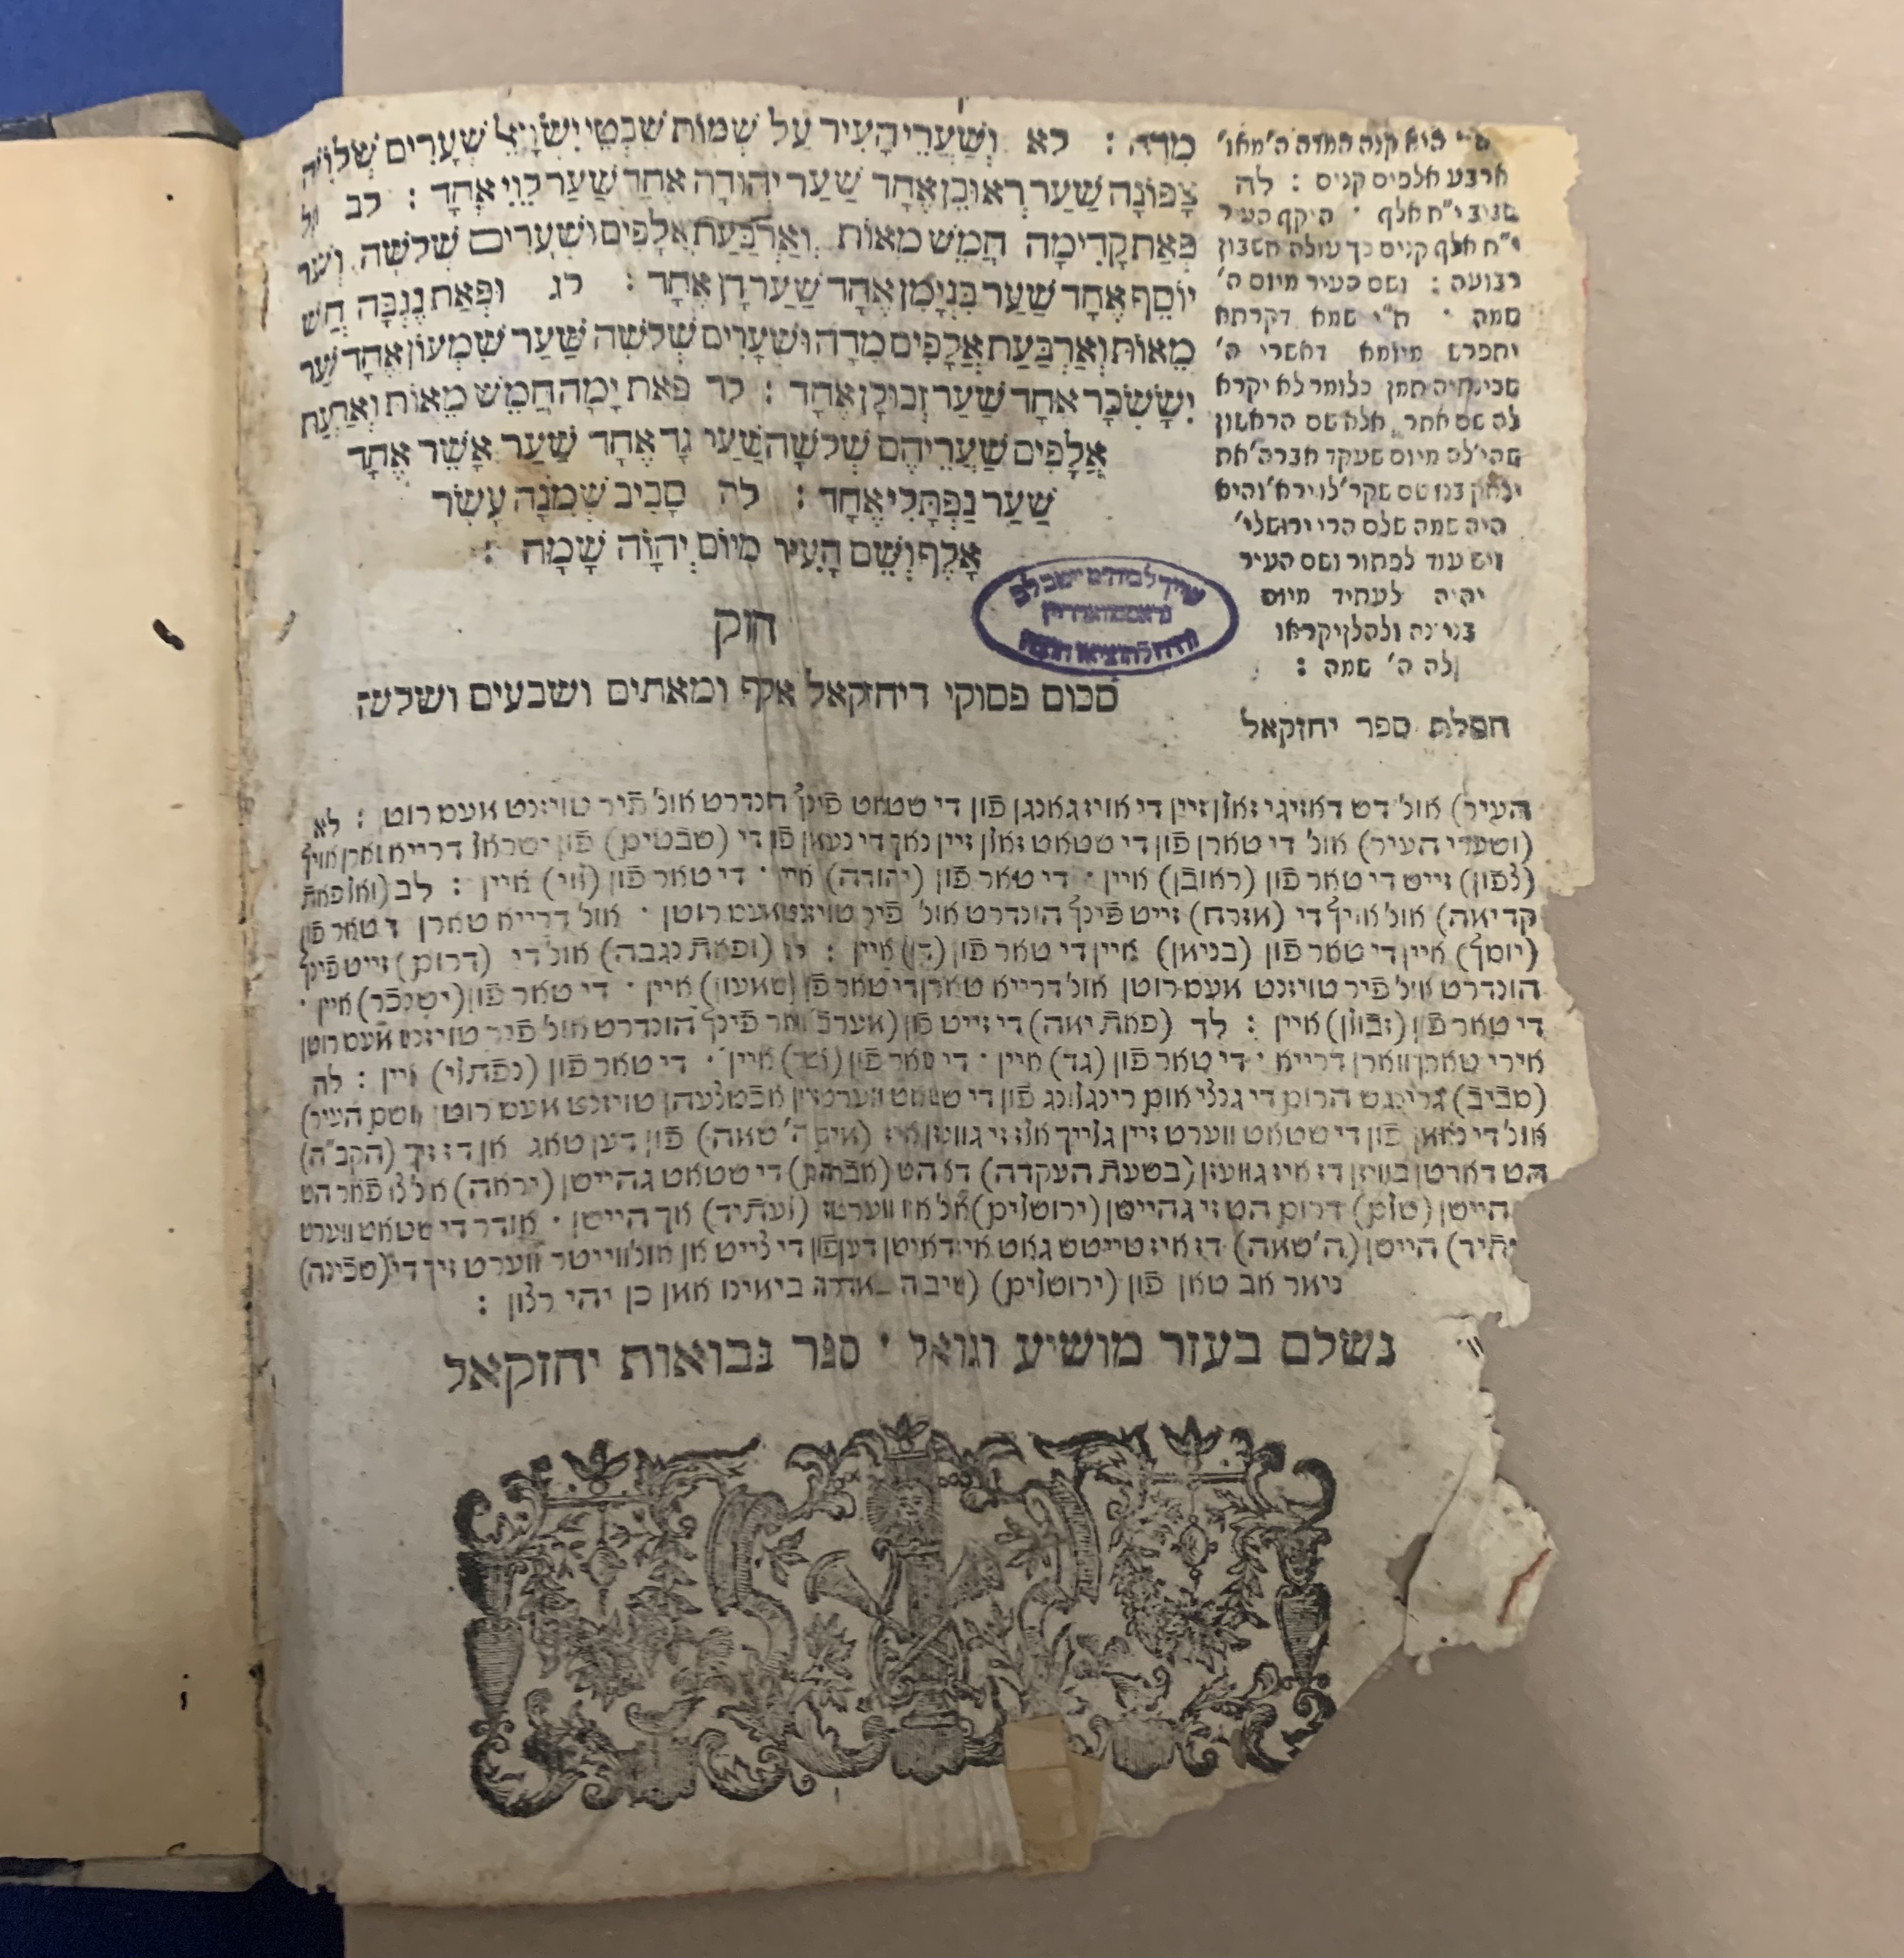 מדה : לא וְשַׁעֲרֵי הָעִיר עַל שְׁמוֹת שִׁבְטֵי יִשְׂרָאֵל שְׁעָרִים שְׁלוֹשָׁה
צָפוֹנָה שַׁעַר רְאוּבֵן אֶחָד שַׁעַר יְהוּדָה אֶחָד שַׁעַר לֵוִי אֶחָד : לב
פְּאַת קָדִימָה חֲמֵשׁ מֵאוֹת וְאַרְבַּעַת אֲלָפִים וּשְׁעָרִים שְׁלֹשָׁה
יוֹסֵף אֶחָד שַׁעַר בִּנְיָמִן אֶחָד שַׁעַר דָּן אֶחָד : לג וּפְאַת נֶגְבָּה
מֵאוֹת וְאַרְבַּעַת אֲלָפִים מִדָּה וּשְׁעָרִים שְׁלֹשָׁה שַׁעַר שִׁמְעוֹן אֶחָד שַׁעַר
יִשָּׂשׂכָר אֶחָד שַׁעַר זְבוּלֻן אֶחָד : לד פְּאַת יָמָּה חֲמֵשׁ מֵאוֹת
אֲלָפִים שַׁעֲרֵיהֶם שְׁלֹשָׁה שַׁעַר גָּד אֶחָד שַׁעַר אָשֵׁר אֶחָד
שַׁעַר נַפְתָּלִי אֶחָד : לה סָבִיב שְׁמֹנָה עָשָׂר
אָלֶף וְשֵׁם הָעִיר מִיּוֹם יְהוָֹה שָׁמָּה :
חזק
סכום פסוקי דיחזקאל אלף ומאתים ושבעים ושלשה
היא קנה המדה
ארבע אלפים קנים : לה
סביב י"ח אלף · היקף העיר
י"ח אלף קנים כך עולה חשבון
רבועה : ושם העיר מיום ה'
שמה · ת"י שמא דקרתא
יתפרש מיומא דאשרי ה'
שכינתיה תמן כלומר לא יקרא
לה שם אחר אלא שם הראשון
מיום שעקד אברה' את
יצחק
היה שמה שלם הרי ירושלי'
ויש עוד לפתור ושם העיר
יהיה לעתיד מיום
ולהלן יקראו
לה ה' שמה :
חסלת ספר יחזקאל
העיר) אונ' דש דאזיגי זאלן זיין די אויז גאנגן פון די שטאט פינף הונדרט אונ' פיר טויזנט אעס רוט : לא
(ושערי העיר) אונ' די טארן פון די שטאט זאלן זיין נאך די נעמן פון די (שבטים) פון ישראל דרייא טארן אויף
(צפון) זייט די טאר פון (ראובן) איין · די טאר פון (יהודה) איין · די טאר פון (לוי) איין : לב (ואל פאת
קדימה) אונ' אויף די (מזרח) זייט פינף הונדרט אונ' פיר טויזנט אעס רוטן · אונ' דרייא טארן די טאר פון
(יוסף) איין די טאר פון (בנימן) איין די טאר פון (דן) איין : לג (ופאת נגבה) אונ' די (דרום) זייט פינף
הונדרט אונ' פיר טויזנט אעס רוטן אונ' דרייא טארן די טאר פון (שמעון) איין · די טאר פון (יששכר) איין ·
די טאר פון (זבולן) איין : לד (פאת ימה) די זייט פון (מערב) פינף הונדרט אונ' פיר טויזנט אעס רוטן
אירי טארן ווארן דרייא · די טאר פון (גד) איין · די טאר פון (אשר) איין · די טאר פון (נפתלי) איין : לה
(סביב) גרינגס הרום די גנצי אום רינגלונג פון די שטאט ווערט זיין אכטצעהן טויזנט אעס רוטן (ושם העיר)
אונ' די נאמן פון די שטאט ווערט זיין גלייך אלז זי גוועזן איז (מיום ה' שמה) פון דען טאג אן דז זיך (הקב"ה)
הט דארטן בוויזן דז איז גוועזן (בשעת העקדה) דא הט (אברהם) די שטאט גהייסן (יראה)
הייסן (שלם) דרום הט זי גהייסן (ירושלים) אלזו ווערט (לעתיד) אך הייסן · אודר די שטאט ווערט
הייסן (ה' שמה) דז איז טייטש גאט איז דארטן דען פון די צייט אן אונ' ווייטר ווערט זיך די (שכינה)
ניאר אב טאן פון (ירושלים) במהרה בימינו אמן כן יהי רצון :
נשלם בעזר מושיע וגואל · ספר נבואות יחזקאל